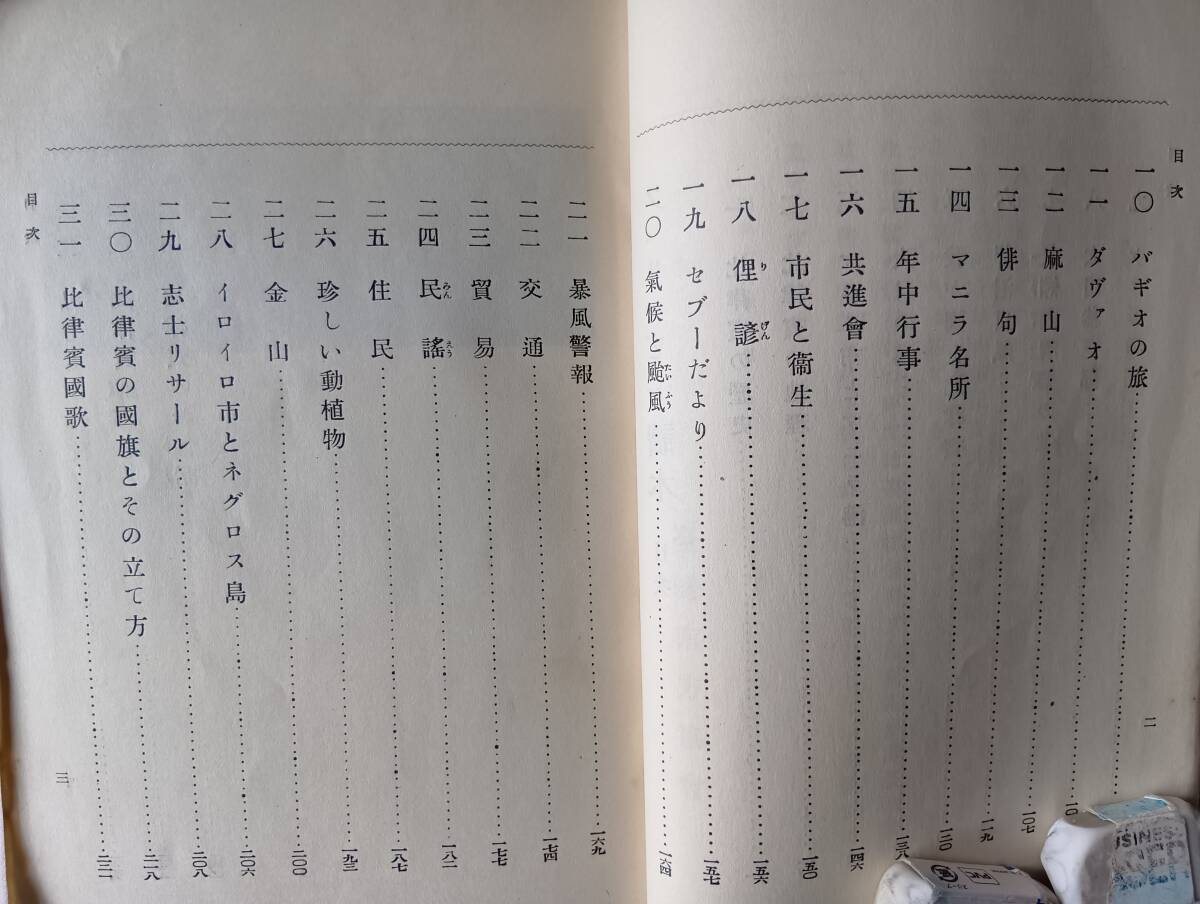 目次
一〇 バギオの旅
一一 ダヴァオ……10
一二 麻山……一〇七
一三 俳句……一一九
一四 マニラ名所……一三〇
一五 年中行事……一三八
一六 共進會……一四六
一七 市民と衞生……一五〇
一八 俚諺……一五六
りげん
一九 セブーだより……一五七
二〇 氣候と颱風……一六四
たいふう
二
二一 暴風警報……一六九
二二 交通……一七四
二三 貿易……一七七
二四 民謠……一八二
みんえう
二五 住民……一八七
二六 珍しい動植物……一九三
二七 金山……二〇〇
二八 イロイロ市とネグロス島……二〇六
二九 志士リサール……二〇八
三〇 比律賓の國旗とその立て方……二一八
三一 比律賓國歌……二二一
目次
三
USINES
PVC